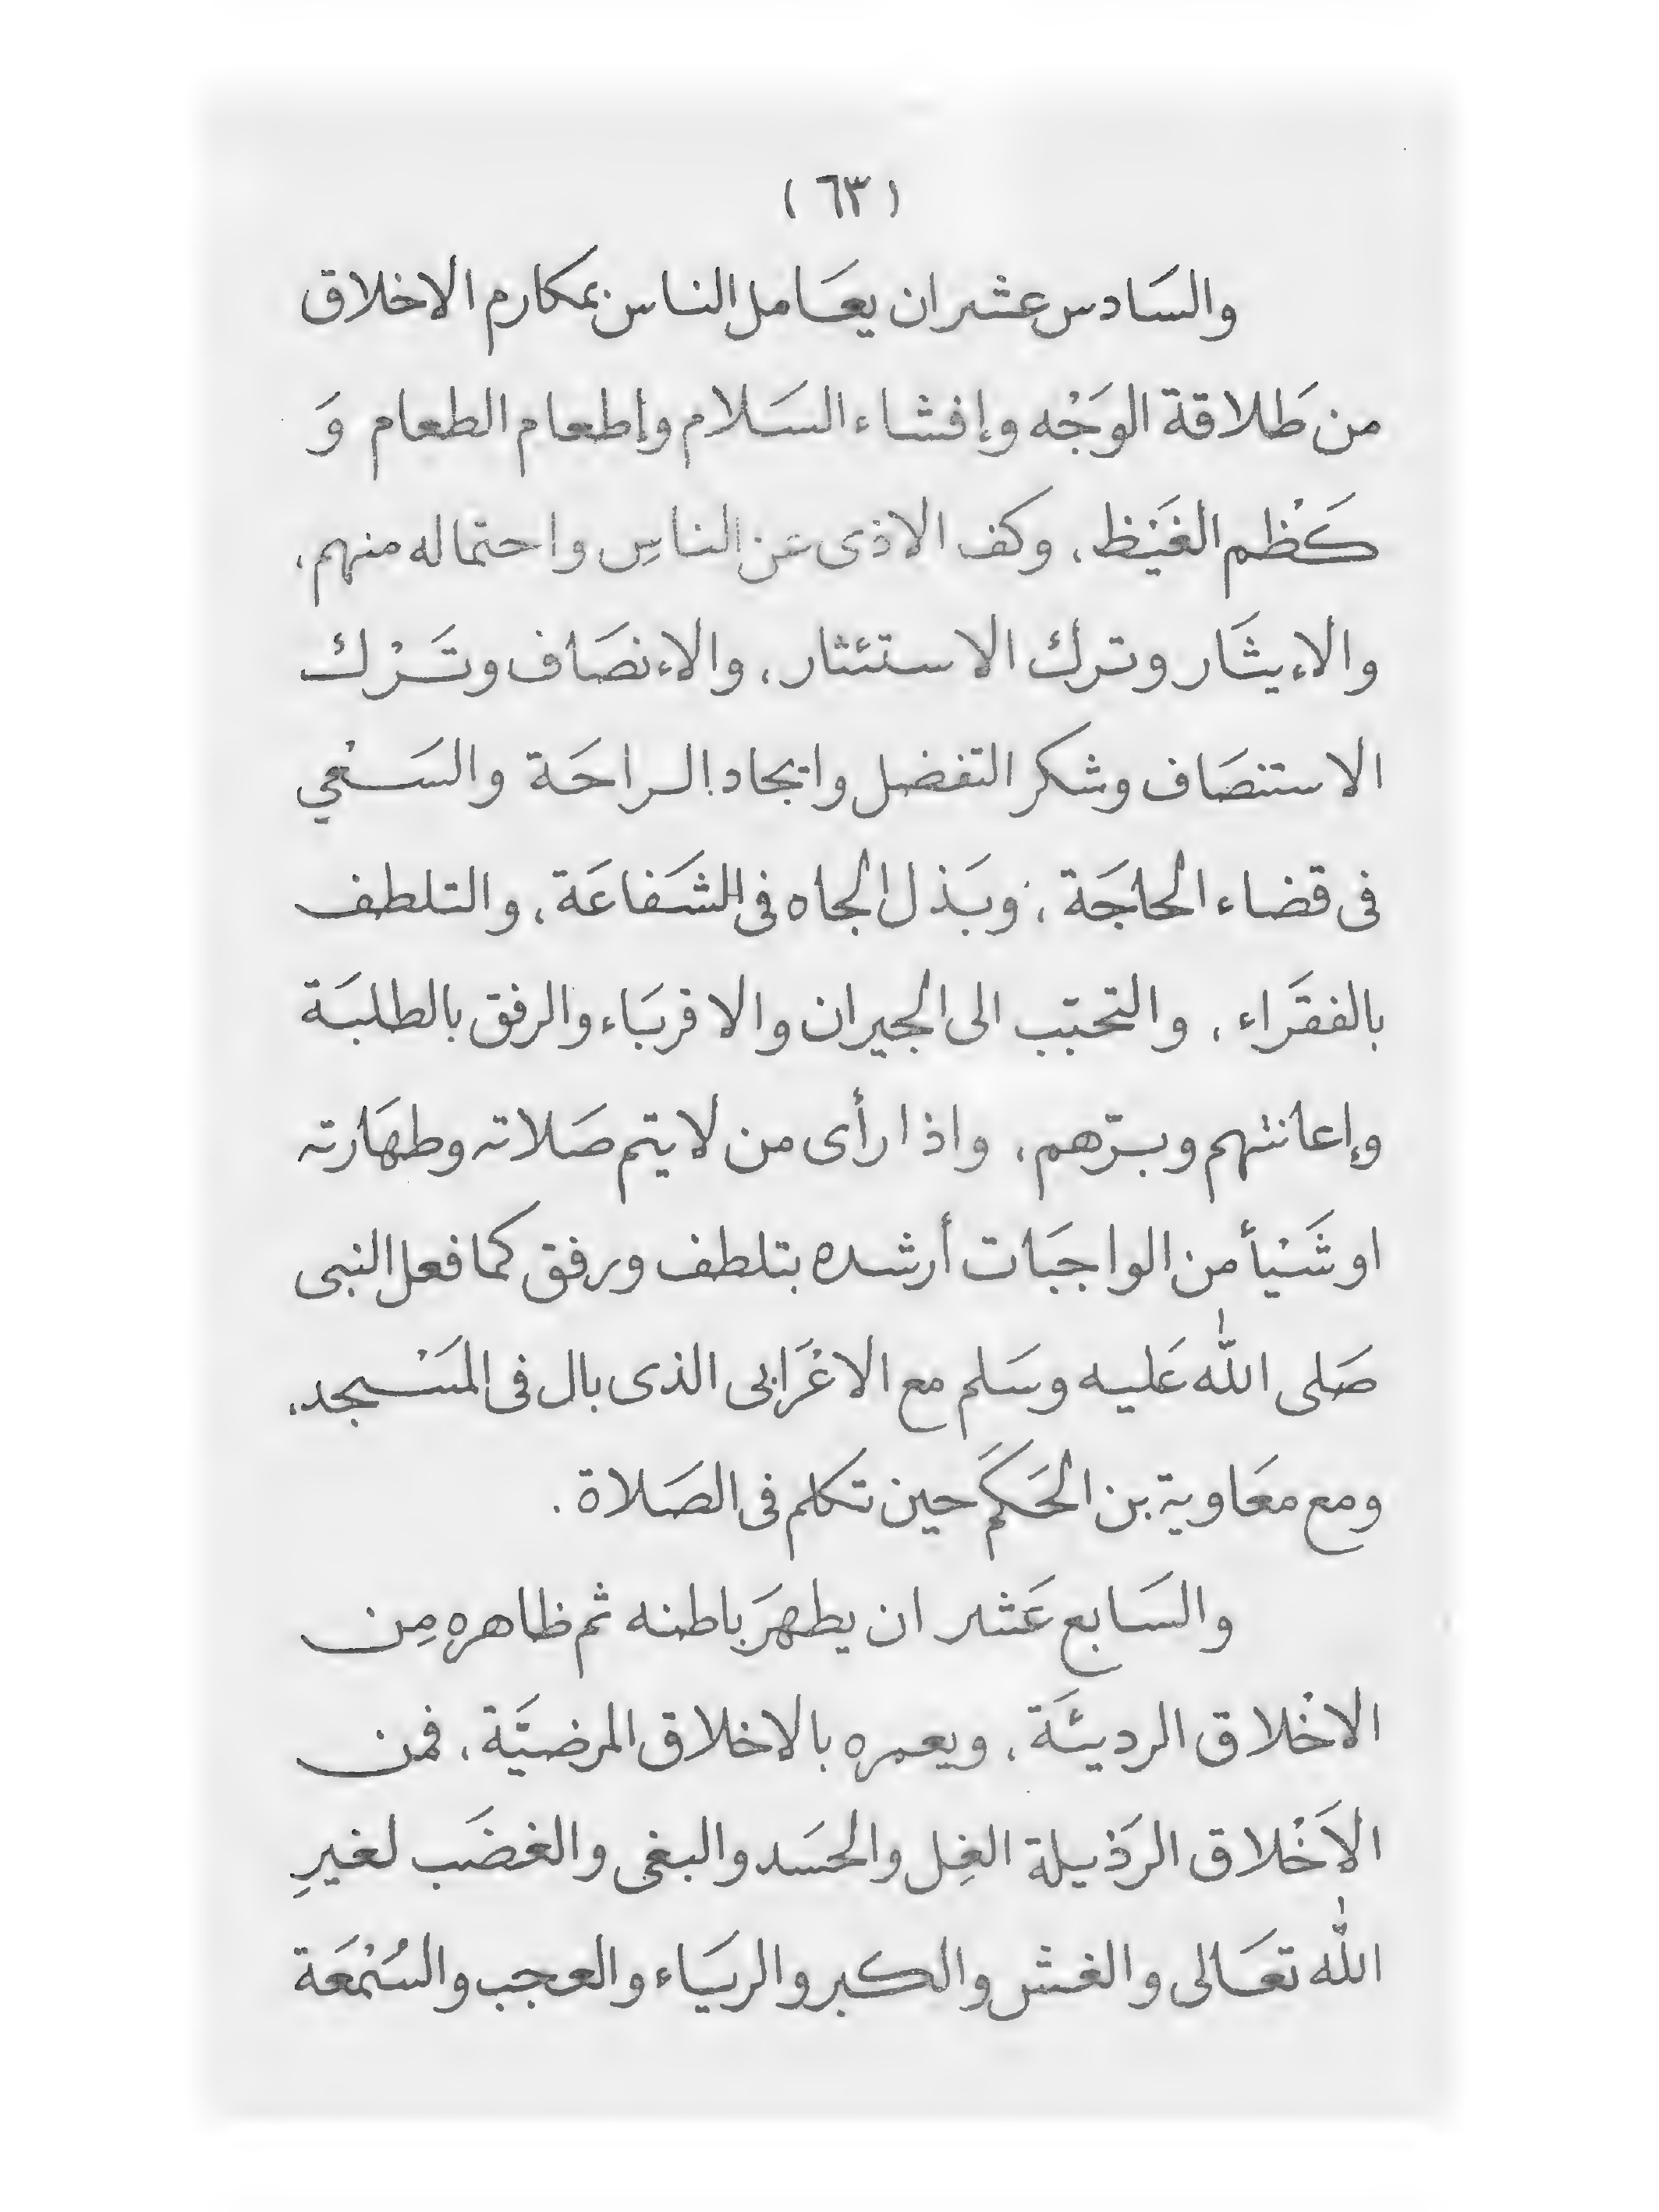 ( ٦٣ )
والسَادس عشر ان يعَامل الناس بمكارم الاخلاق
من طَلاقة الوَجْه وإفشاء السَلام وإطعام الطعام وَ
كَظْم الغَيْظ، وكف الاذى عن الناسِ واحتماله منهم،
والاءيثَار وترك الاستئثار، والاءنصَاف وتَرْك
الاستنصَاف وشكر التفضل وايجاد الراحَة والسَعْي
فى قضاء الحاجَة، وبَذل الجاه فى الشَفاعَة، والتلطف
بالفقَراء، والتحبّب الى الجيران والاقربَاء والرفق بالطلبَة
وإعانتهم وبرّهم، واذا رأى من لا يتم صَلاته وطهَارته
او شَيْأ من الواجبَات أرشده بتلطف ورفق كما فعل النبى
صَلى الله عَليه وسَلم مع الاعْرَابى الذى بال فى المَسْجد،
ومع معَاوية بن الحَكَم حين تكلم فى الصَلاة .
والسَابع عَشر ان يطهرَ باطنه ثم ظاهره مِن
الاخْلاق الرديئَة، ويعمره بالاخلاق المرضيَّة، فمن
الاَخْلاق الرَذيلة الغِل والحسَد والبغى والغضَب لغيرِ
الله تعَالى والغش والكبر والريَاء والعجب والسُمْعَة